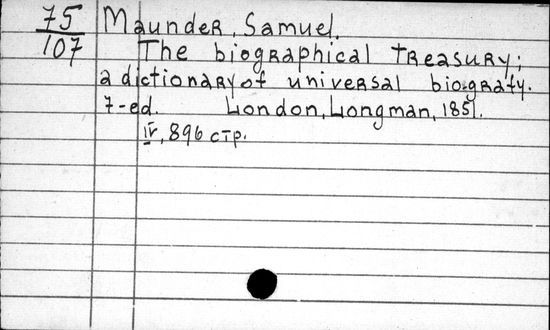 75
107
Maunder, Samuel.
The biographical treasury;
a dictionary of universal biografy.
7-ed. London, Longman, 1851.
IV, 896 стр.